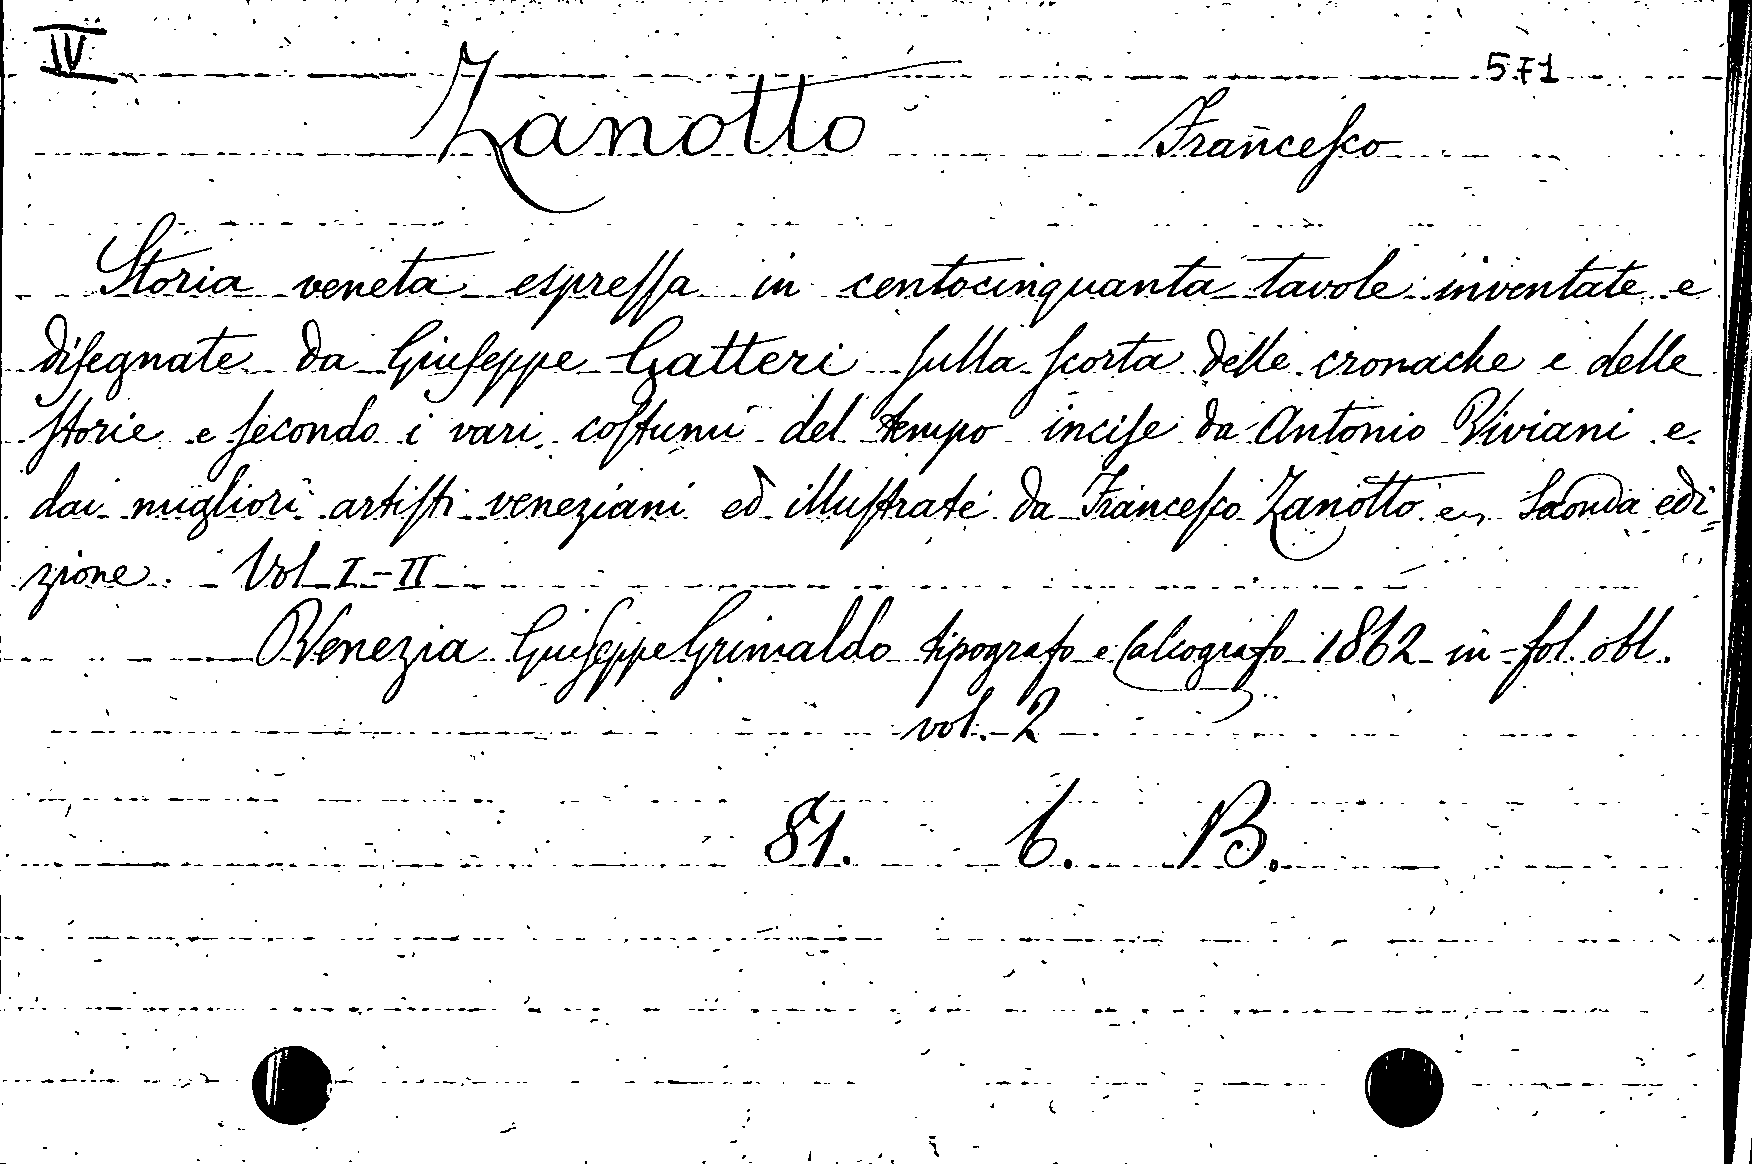 IV
571
Zanotto Francesco
Storia veneta espressa in centocinquanta tavole inventate e
disegnate da Giuseppe Gatteri sulla scorta delle cronache e delle
storie e secondo i vari costumi del tempo incise da Antonio Viviani e
dai migliori artisti veneziani ed illustrate da Francesco Zanotto Seconda edi=
zione. Vol I-II
Venezia Giuseppe Grimaldo tipografo e Calcografo 1862 in-fol. obl.
vol. 2
81. 6. B.